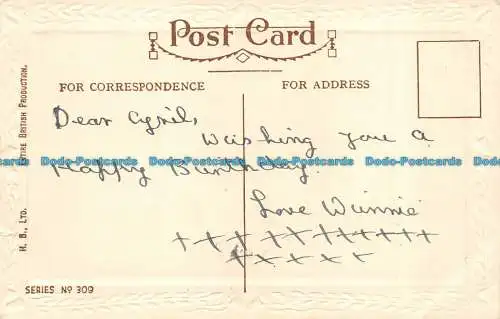 Post Card
FOR CORRESPONDENCE
FOR ADDRESS
Dear Cyril,
Wishing you a
Happy Birthday.
Love Winnie
Dodo-Postcards Dodo-Postcards Dodo-Postcards Dodo-Postcards Dodo-Postcards
H. B., LTD. ENTIRE BRITISH PRODUCTION.
SERIES No 309